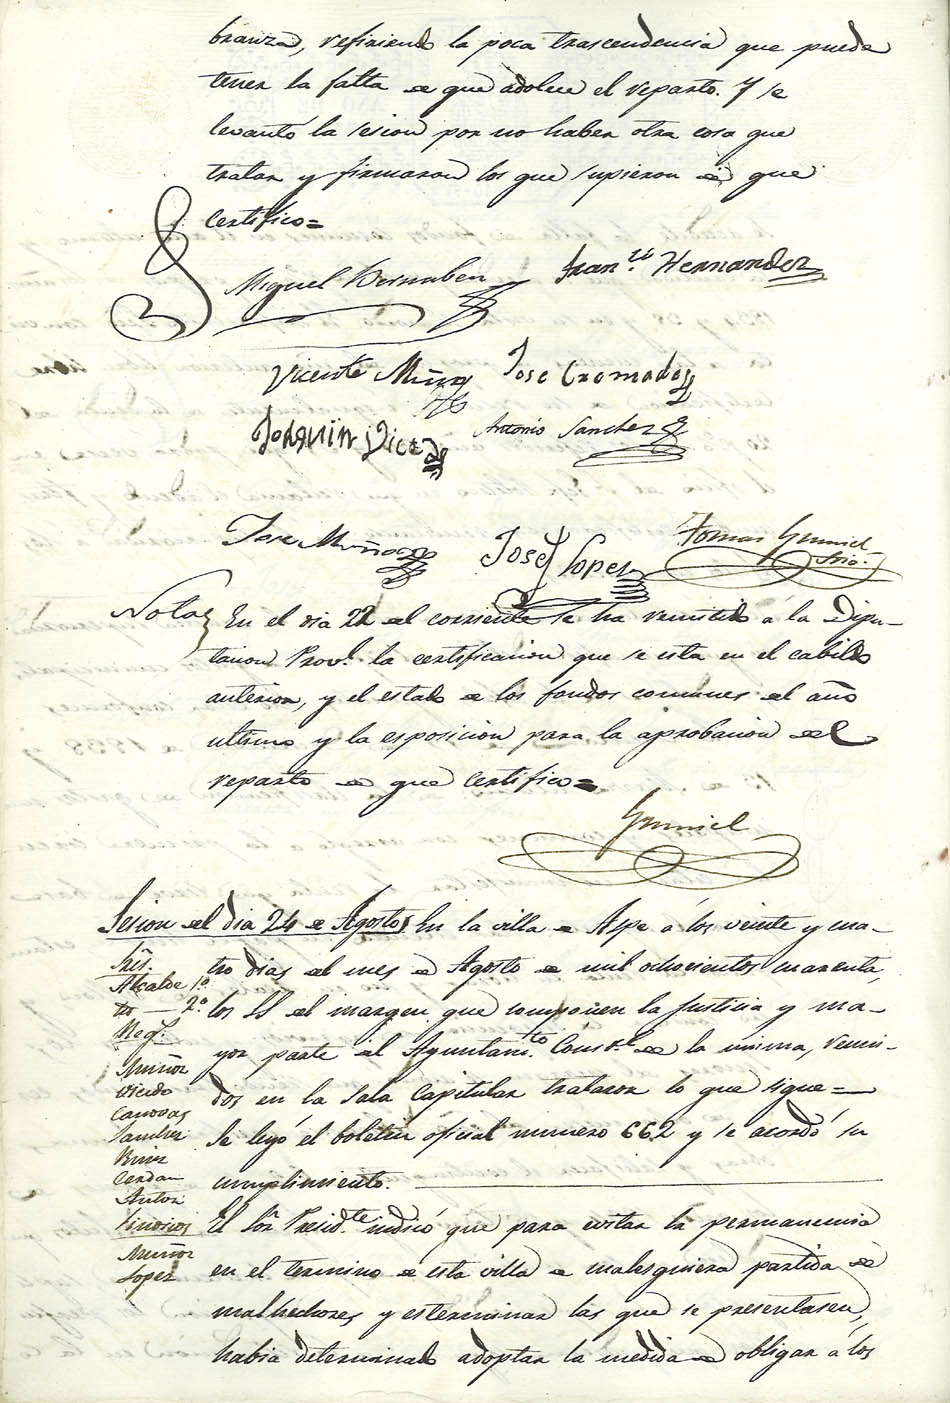 branza, refiriendo la poca trascendencia que puede
tener la falta de que adolece el reparto. Y se
levantó la sesion por no haber otra cosa que
tratar y firmaron los que supieron de que
certifico=
Miguel Bernabeu Fran.co Hernandez
Vicente Muñoz Jose Cremades
Joaquin Vicedo Antonio Sanchez
Jose Muñoz Jose Lopez Tomas Gumiel
Srio.
Nota En el dia 22 del corriente se ha remitido á la Dipu-
tacion Prov.l la certificacion que se cita en el cabildo
anterior, y el estado de los fondos comunes del año
ultimo y la esposicion para la aprobacion del
reparto de que certifico=
Gumiel
Sesion del dia 24 de Agosto En la villa de Aspe á los veinte y cua-
Sres. tro dias del mes de Agosto de mil ochocientos cuarenta,
Alcalde 1.º
2.º los SS del margen que componen la Justicia y ma-
Reg.s
yor parte del Ayuntam.to Cons.l de la misma, reuni-
Muñoz
Vicedo dos en la Sala Capitular trataron lo que sigue=
Canovas
Sanchez Se leyó el boletin oficial numero 662 y se acordó su
Ruiz
Cerdan cumplimiento.
Anton
Sindicos El Sor. Presid.te indicó que para evitar la permanencia
Muñoz en el termino de esta villa de cualesquiera partida de
Lopez
malhechores y esterminar las que se presentasen,
habia determinado adoptar la medida de obligar á los